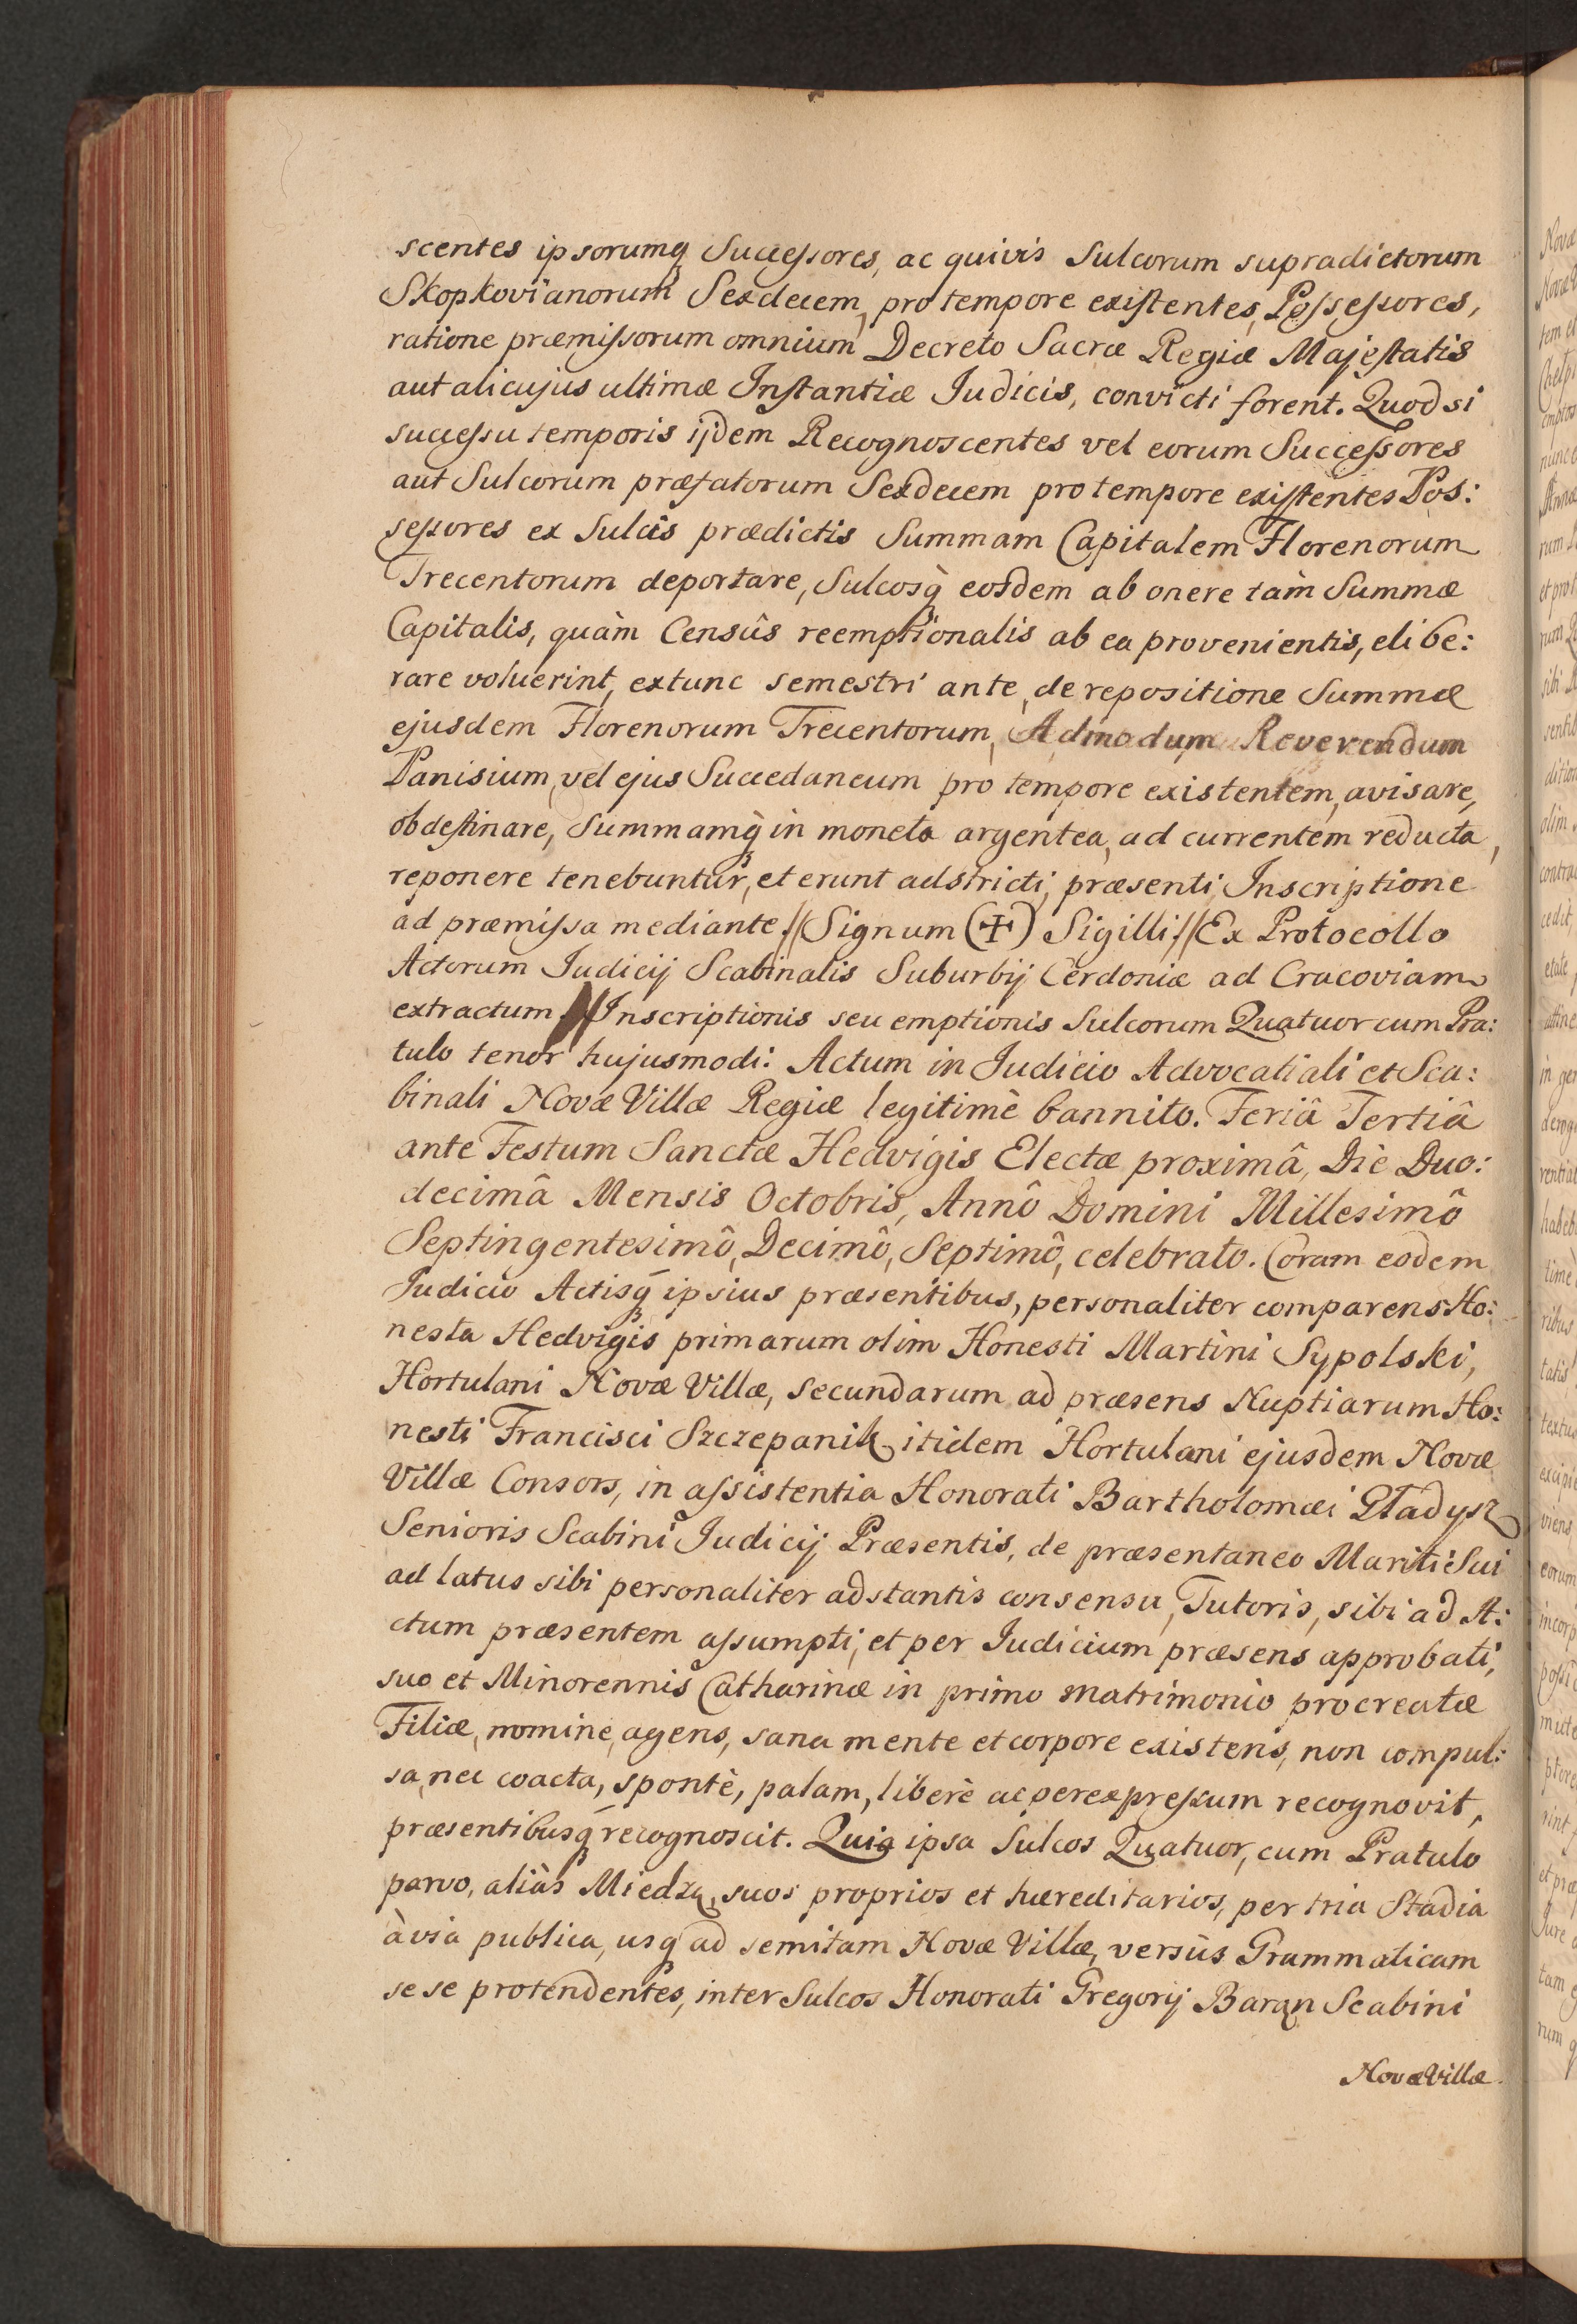 scentes ipsorumq Successores, ac quivis Sulcorum supradictorum
Skopkovianorum Sexdecem, pro tempore existentes, Possessores,
ratione præmissorum omnium Decreto Sacræ Regiæ Majestatis
aut alicujus ultimæ Instantiæ Judicis, convicti forent. Quod si
successu temporis ijdem Recognoscentes vel eorum Successores
aut Sulcorum præfatorum Sexdecem pro tempore existentes Pos:
sessores ex Sulcis prædictis Summam Capitalem Florenorum
Trecentorum deportare, Sulcosq̀ eosdem ab onere tàm Summæ
Capitalis, quàm Censûs reemptionalis ab ea provenientis, elibe:
rare voluerint, extunc semestri ante, de repositione Summæ
ejusdem Florenorum Trecentorum, Admodum Reverendum
Panisium, vel ejus Succedaneum pro tempore existentem, avisare,
obdestinare, Summamq̀ in moneta argentea, ad currentem reducta,
reponere tenebuntur, et erunt adstricti, præsenti Inscriptione
ad præmissa mediante.// Signum (✠) Sigilli.// Ex Protocollo
Actorum Judicij Scabinalis Suburbij Cerdoniæ ad Cracoviam
extractum.// Inscriptionis seu emptionis Sulcorum Quatuor cum Pra:
tulo tenor hujusmodi: Actum in Judicio Advocatiali et Sca:
binali Novæ Villæ Regiæ legitimè bannito. Feriâ Tertiâ
ante Festum Sanctæ Hedvigis Electæ proximâ, Diè Duo:
decimâ Mensis Octobris, Annô Domini Millesimô
Septingentesimô, Decimô, Septimô, celebrato. Coram eodem
Judicio Actisq̄ ipsius præsentibus, personaliter comparens Ho:
nesta Hedvigis primarum olim Honesti Martini Sypolski,
Hortulani Novæ Villæ, secundarum ad præsens Nuptiarum Ho:
nesti Francisci Szczepanik itidem Hortulani ejusdem Novæ
Villæ Consors, in assistentia Honorati Bartholomæi Gładysz
Senioris Scabini Judicij Præsentis, de præsentaneo Mariti Sui
ad latus sibi personaliter adstantis consensu, Tutoris, sibi ad A:
ctum præsentem assumpti, et per Judicium præsens approbati,
suo et Minorennis Catharinæ in primo matrimonio procreatæ
Filiæ, nomine, agens, sana mente et corpore existens, non compul:
sa, nec coacta, spontè, palam, liberè ac per expressum recognovit,
præsentibusq̄ recognoscit. Quia ipsa Sulcos Quatuor, cum Pratulo
parvo, aliàs Miedzą, suos proprios et hæreditarios, per tria Stadia
à via publica, usq̄ ad semitam Novæ Villæ, versùs Grammaticam
sese protendentes, inter Sulcos Honorati Gregorij Baran Scabini
Novæ Villæ